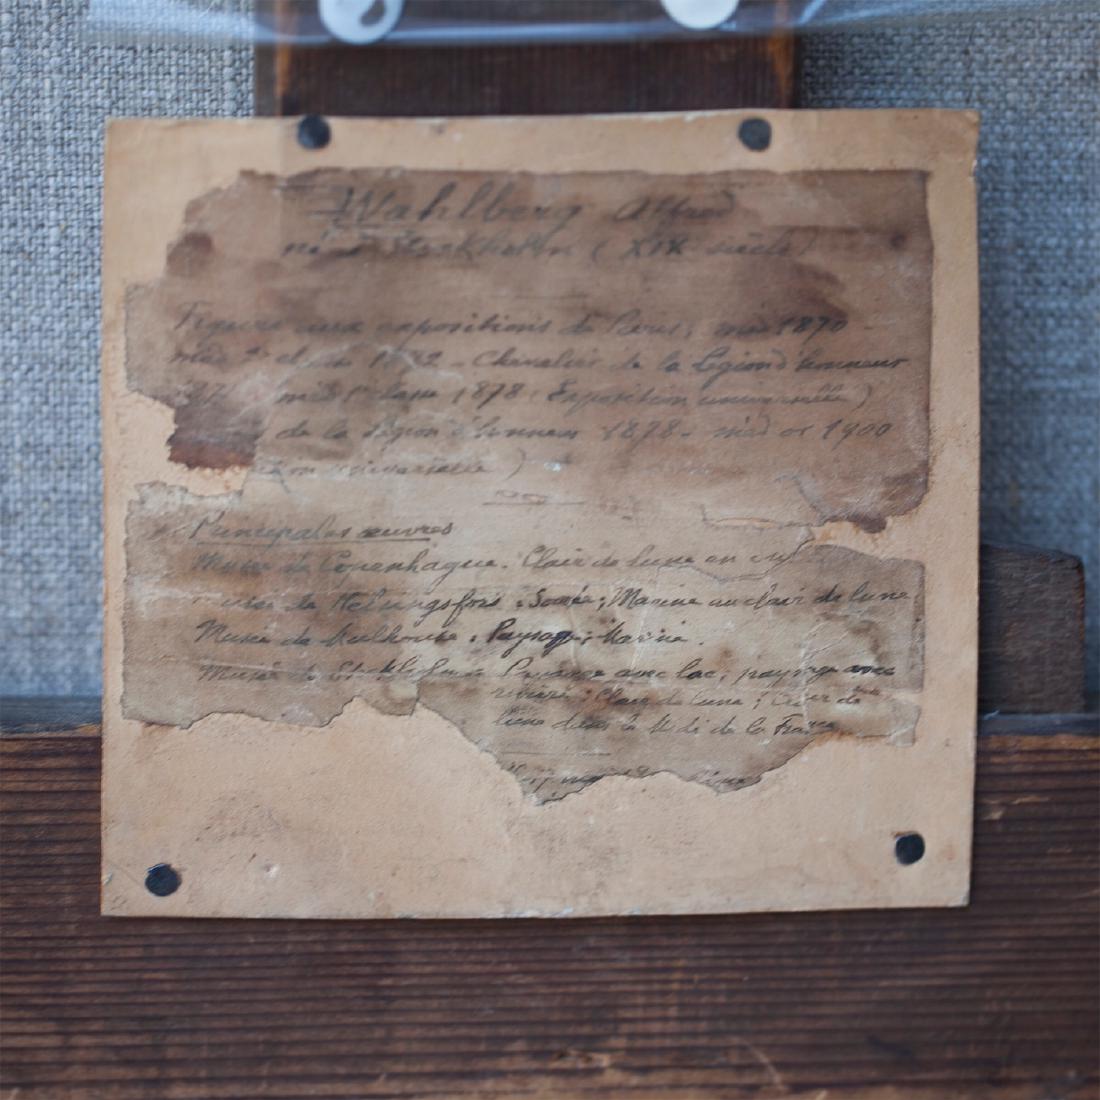 Wahlberg Alfred
né à Stockholm (XIXe siècle)
Figure aux expositions de Paris; med 1870 -
med 2e classe 1872 - Chevalier de la Légion d'honneur
med 1e classe 1878 (Exposition universelle)
de la Légion d'honneur 1878 - med or 1900
universelle)
Principales œuvres
Musée de Copenhague. Clair de lune en
musée de Helsingfors : Soirée; Marine au clair de lune.
Musée de Mulhouse : Paysage; Marine.
Musée de Stockholm Paysage avec lac; paysage avec
rivière; Clair de lune; Clair de
lune dans le Midi de la France